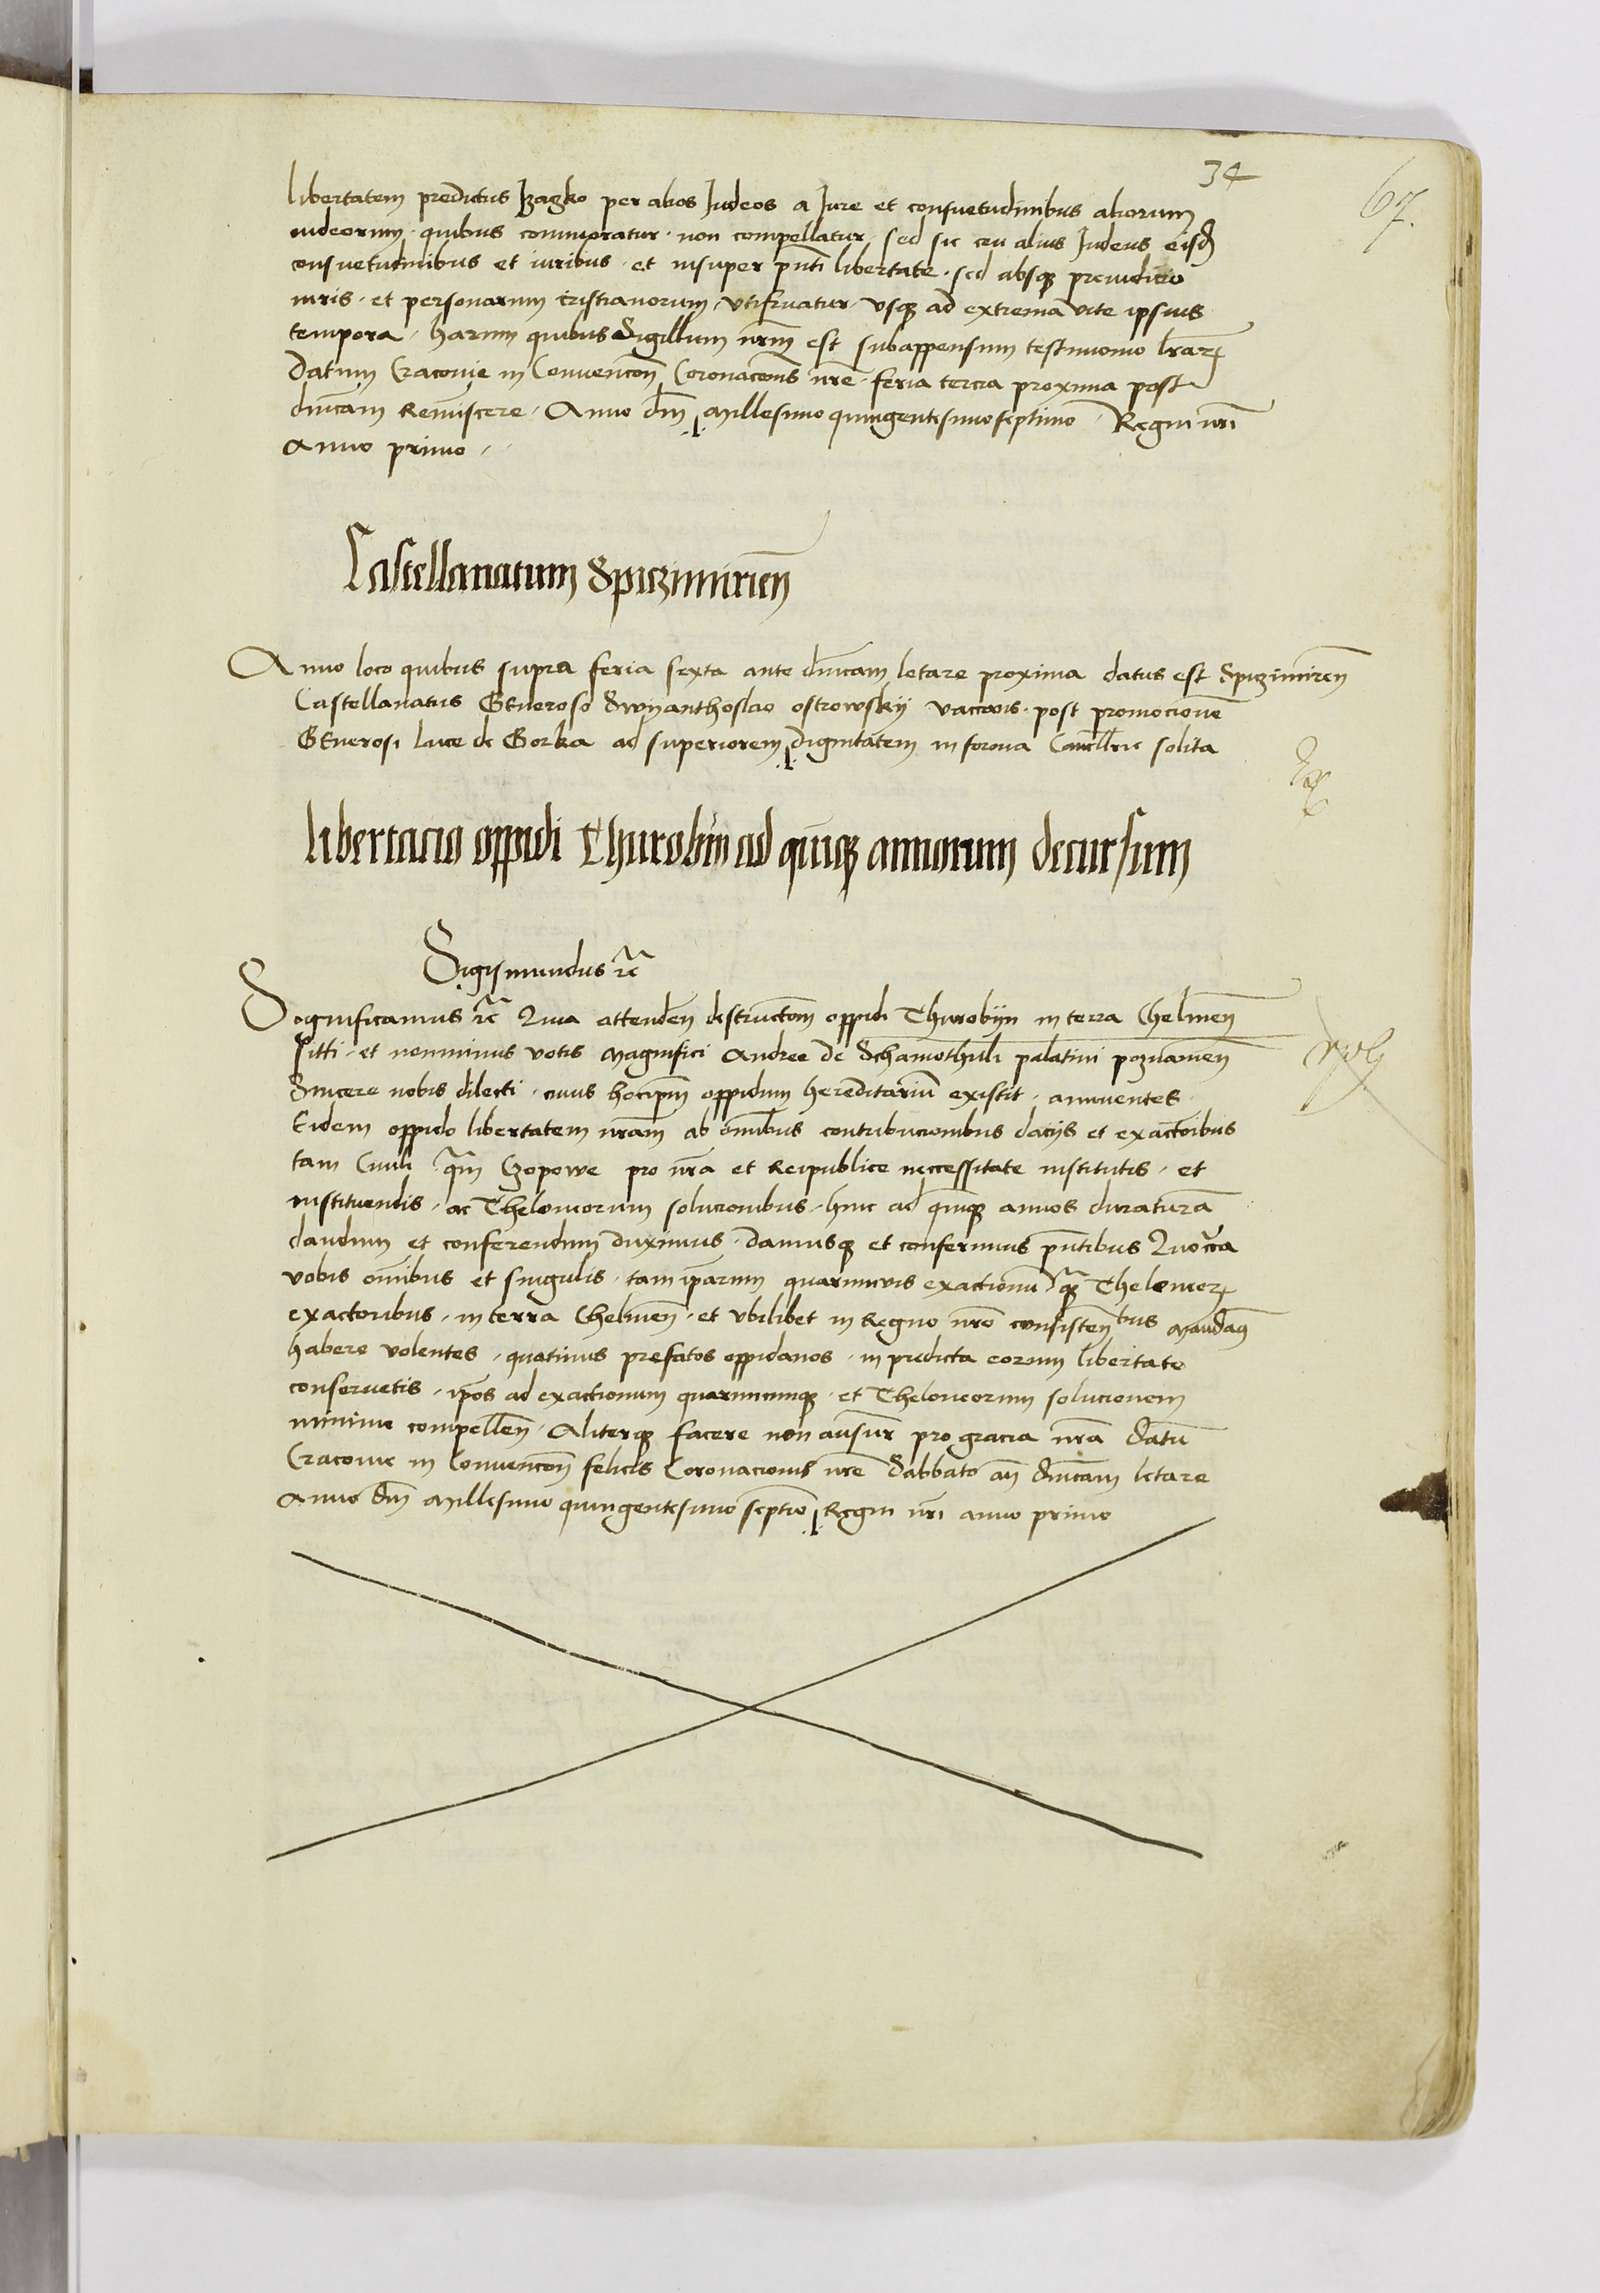 34
67.
libertatem predictus Jzagko per alios Judeos a Jure et consuetudinibus aliorum
iudeorum · quibus commoratur · non compellatur · sed sic ceu alius Judeus eisd
consuetudinibus et iuribus · et insuper pnti libertate · sed absq preiudicio
iuris · et personarum cristianorum · vtifruatur · vsq ad extrema vite ipsius
tempora · harum quibus Sigillum nrm est subappensum testimonio lrarz
Datum Cracovie in Convencon Coronacois nre · feria tercia proxima post
dnicam Reminiscere · Anno dni Millesimo quingentesimoseptimo · Regni nri
Anno primo ·
Castellanatum Spiczimirien
Anno loco quibus supra feria sexta ante dnicam letare proxima datus est Spiczimiren
Castellanatus Generoso Swyanthoslao ostrowskij vaccans · post promocionem
Generosi luce de Gorka ad superiorem dignitatem in forma Cancellrie solita
libertacio oppidi Thurobin ad quiqz annorum decursum
Sigismundus rc
Significamus rc Quia attenden destructom oppidi Thurobijn in terra Chelmen
sitti · et nonminus votis magnifici Andree de Schamothuli palatini poznanien
Sincere nobis dilecti · cuius hocipm oppidum hereditarium existit · annuentes
Eidem oppido libertatem nram ab omibus contribucionibus dacijs et exactoibus
tam Civili qm Czopowe pro nra et Reipublice neccessitate institutis · et
instituendis · ac Theloneorum solucionibus · hinc ad quinqz annos duraturam
dandum et conferendum duximus · damusqz et conferimus pntibus Quocca
vobis omibus et singulis · tam iparum quarumvis exactionu qz Theloneorz
exactoribus · in terra Chelmen · et vbilibet in Regno nro consistentibus Mandam
habere volentes · quatinus prefatos oppidanos · in predicta eorum libertate
conservetis · ipos ad exactionum quarumcumqz · et Theloneorum solucionem
minime compellen · Aliterqz facere non ausuri pro gracia nra Datu
Cracovie in Convencon felicis Coronacionis nre Sabbato an dnicam letare
Anno dni Millesimo quingentesimo septio Regni nri anno primo